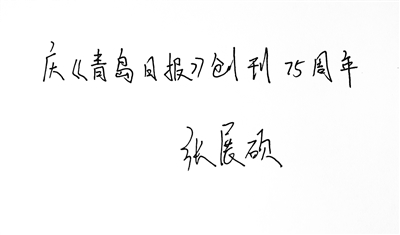 庆《青岛日报》创刊75周年
张展硕